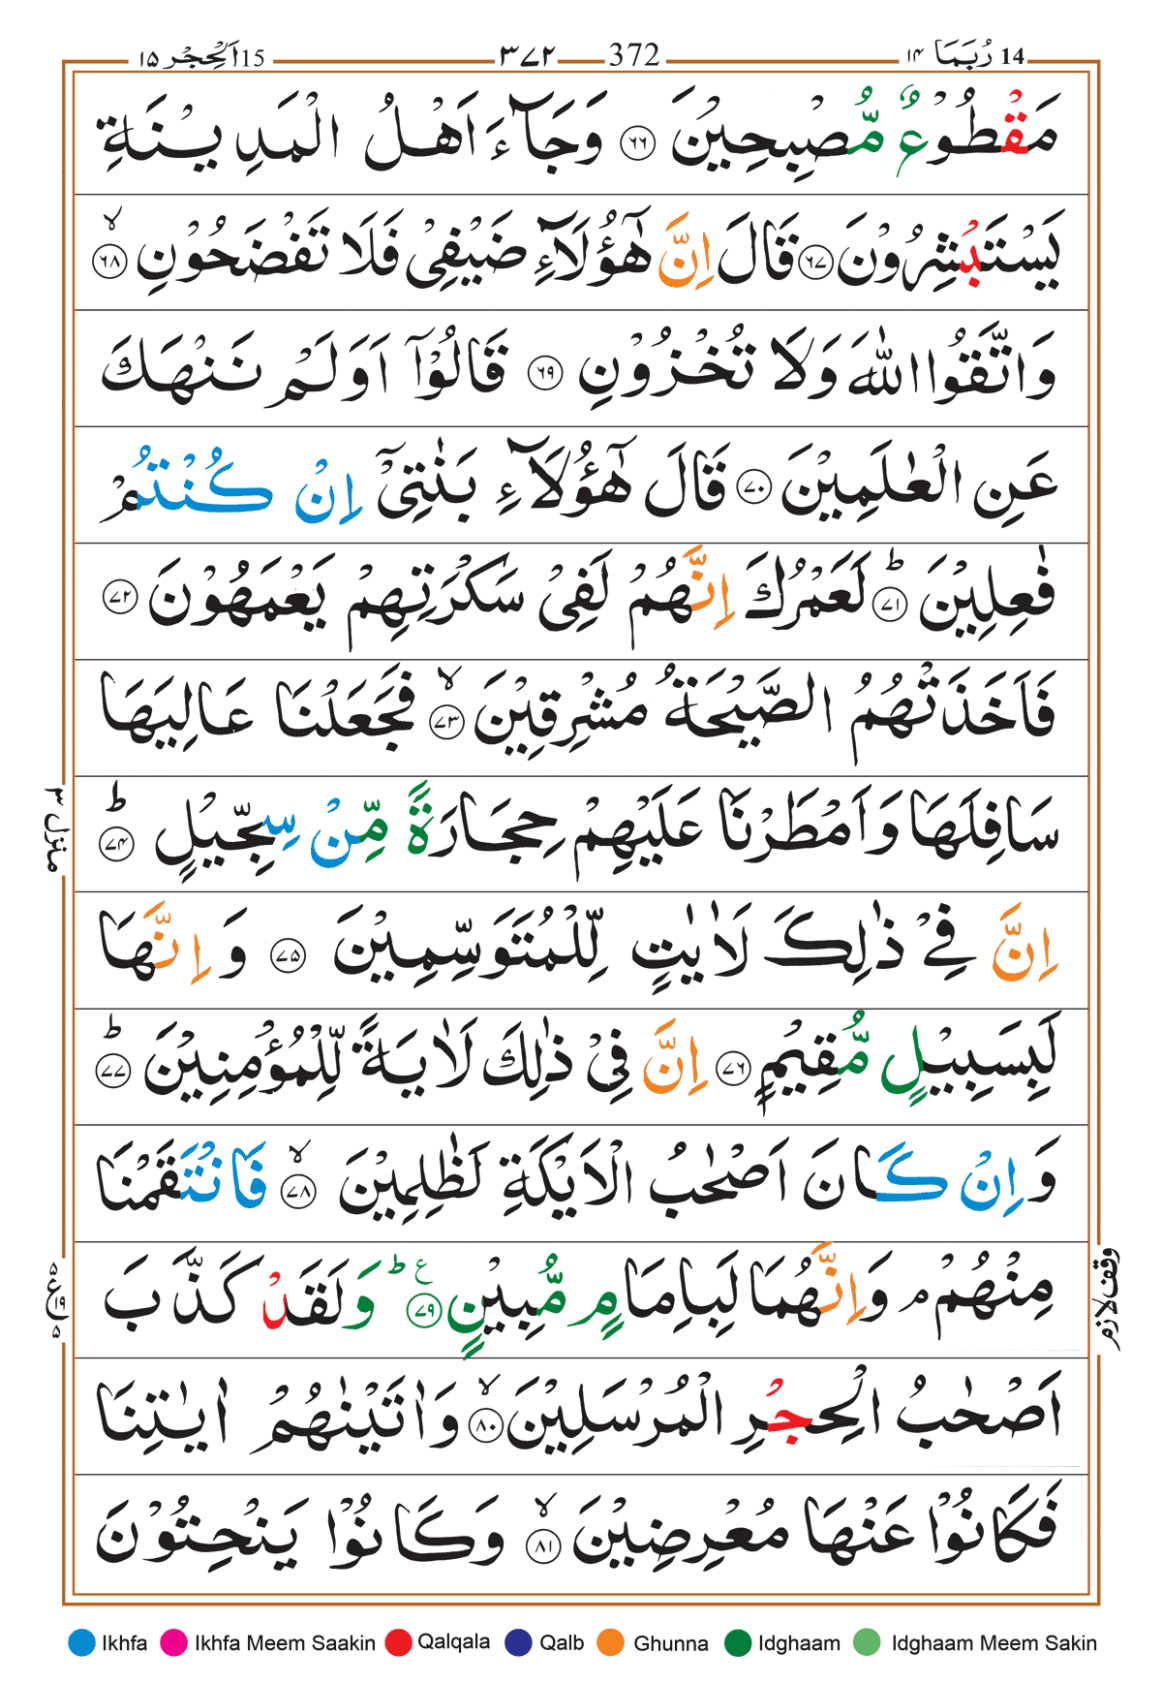 14 رُبَمَا ١٤
372 ٣٧٢
15 اَلْحِجْر ١٥
مَقْطُوْعٌ مُّصْبِحِيْنَ ﴿٦٦﴾ وَجَآءَ اَهْلُ الْمَدِيْنَةِ
يَسْتَبْشِرُوْنَ ﴿٦٧﴾ قَالَ اِنَّ هٰٓؤُلَآءِ ضَيْفِيْ فَلَا تَفْضَحُوْنِ ۙ﴿٦٨﴾
وَاتَّقُوا اللّٰهَ وَلَا تُخْزُوْنِ ﴿٦٩﴾ قَالُوْٓا اَوَلَمْ نَنْهَكَ
عَنِ الْعٰلَمِيْنَ ﴿٧٠﴾ قَالَ هٰٓؤُلَآءِ بَنٰتِيْٓ اِنْ كُنْتُمْ
فٰعِلِيْنَ ؕ﴿٧١﴾ لَعَمْرُكَ اِنَّهُمْ لَفِيْ سَكْرَتِهِمْ يَعْمَهُوْنَ ﴿٧٢﴾
فَاَخَذَتْهُمُ الصَّيْحَةُ مُشْرِقِيْنَ ۙ﴿٧٣﴾ فَجَعَلْنَا عَالِيَهَا
سَافِلَهَا وَاَمْطَرْنَا عَلَيْهِمْ حِجَارَةً مِّنْ سِجِّيْلٍ ؕ﴿٧٤﴾
اِنَّ فِيْ ذٰلِكَ لَاٰيٰتٍ لِّلْمُتَوَسِّمِيْنَ ﴿٧٥﴾ وَاِنَّهَا
لَبِسَبِيْلٍ مُّقِيْمٍ ﴿٧٦﴾ اِنَّ فِيْ ذٰلِكَ لَاٰيَةً لِّلْمُؤْمِنِيْنَ ؕ﴿٧٧﴾
وَاِنْ كَانَ اَصْحٰبُ الْاَيْكَةِ لَظٰلِمِيْنَ ۙ﴿٧٨﴾ فَانْتَقَمْنَا
مِنْهُمْ ۘ وَاِنَّهُمَا لَبِاِمَامٍ مُّبِيْنٍ ؕ﴿٧٩﴾ ع وَلَقَدْ كَذَّبَ
اَصْحٰبُ الْحِجْرِ الْمُرْسَلِيْنَ ۙ﴿٨٠﴾ وَاٰتَيْنٰهُمْ اٰيٰتِنَا
فَكَانُوْا عَنْهَا مُعْرِضِيْنَ ۙ﴿٨١﴾ وَكَانُوْا يَنْحِتُوْنَ
منزل ٣
وقف لازم
Ikhfa Ikhfa Meem Saakin Qalqala Qalb Ghunna Idghaam Idghaam Meem Sakin